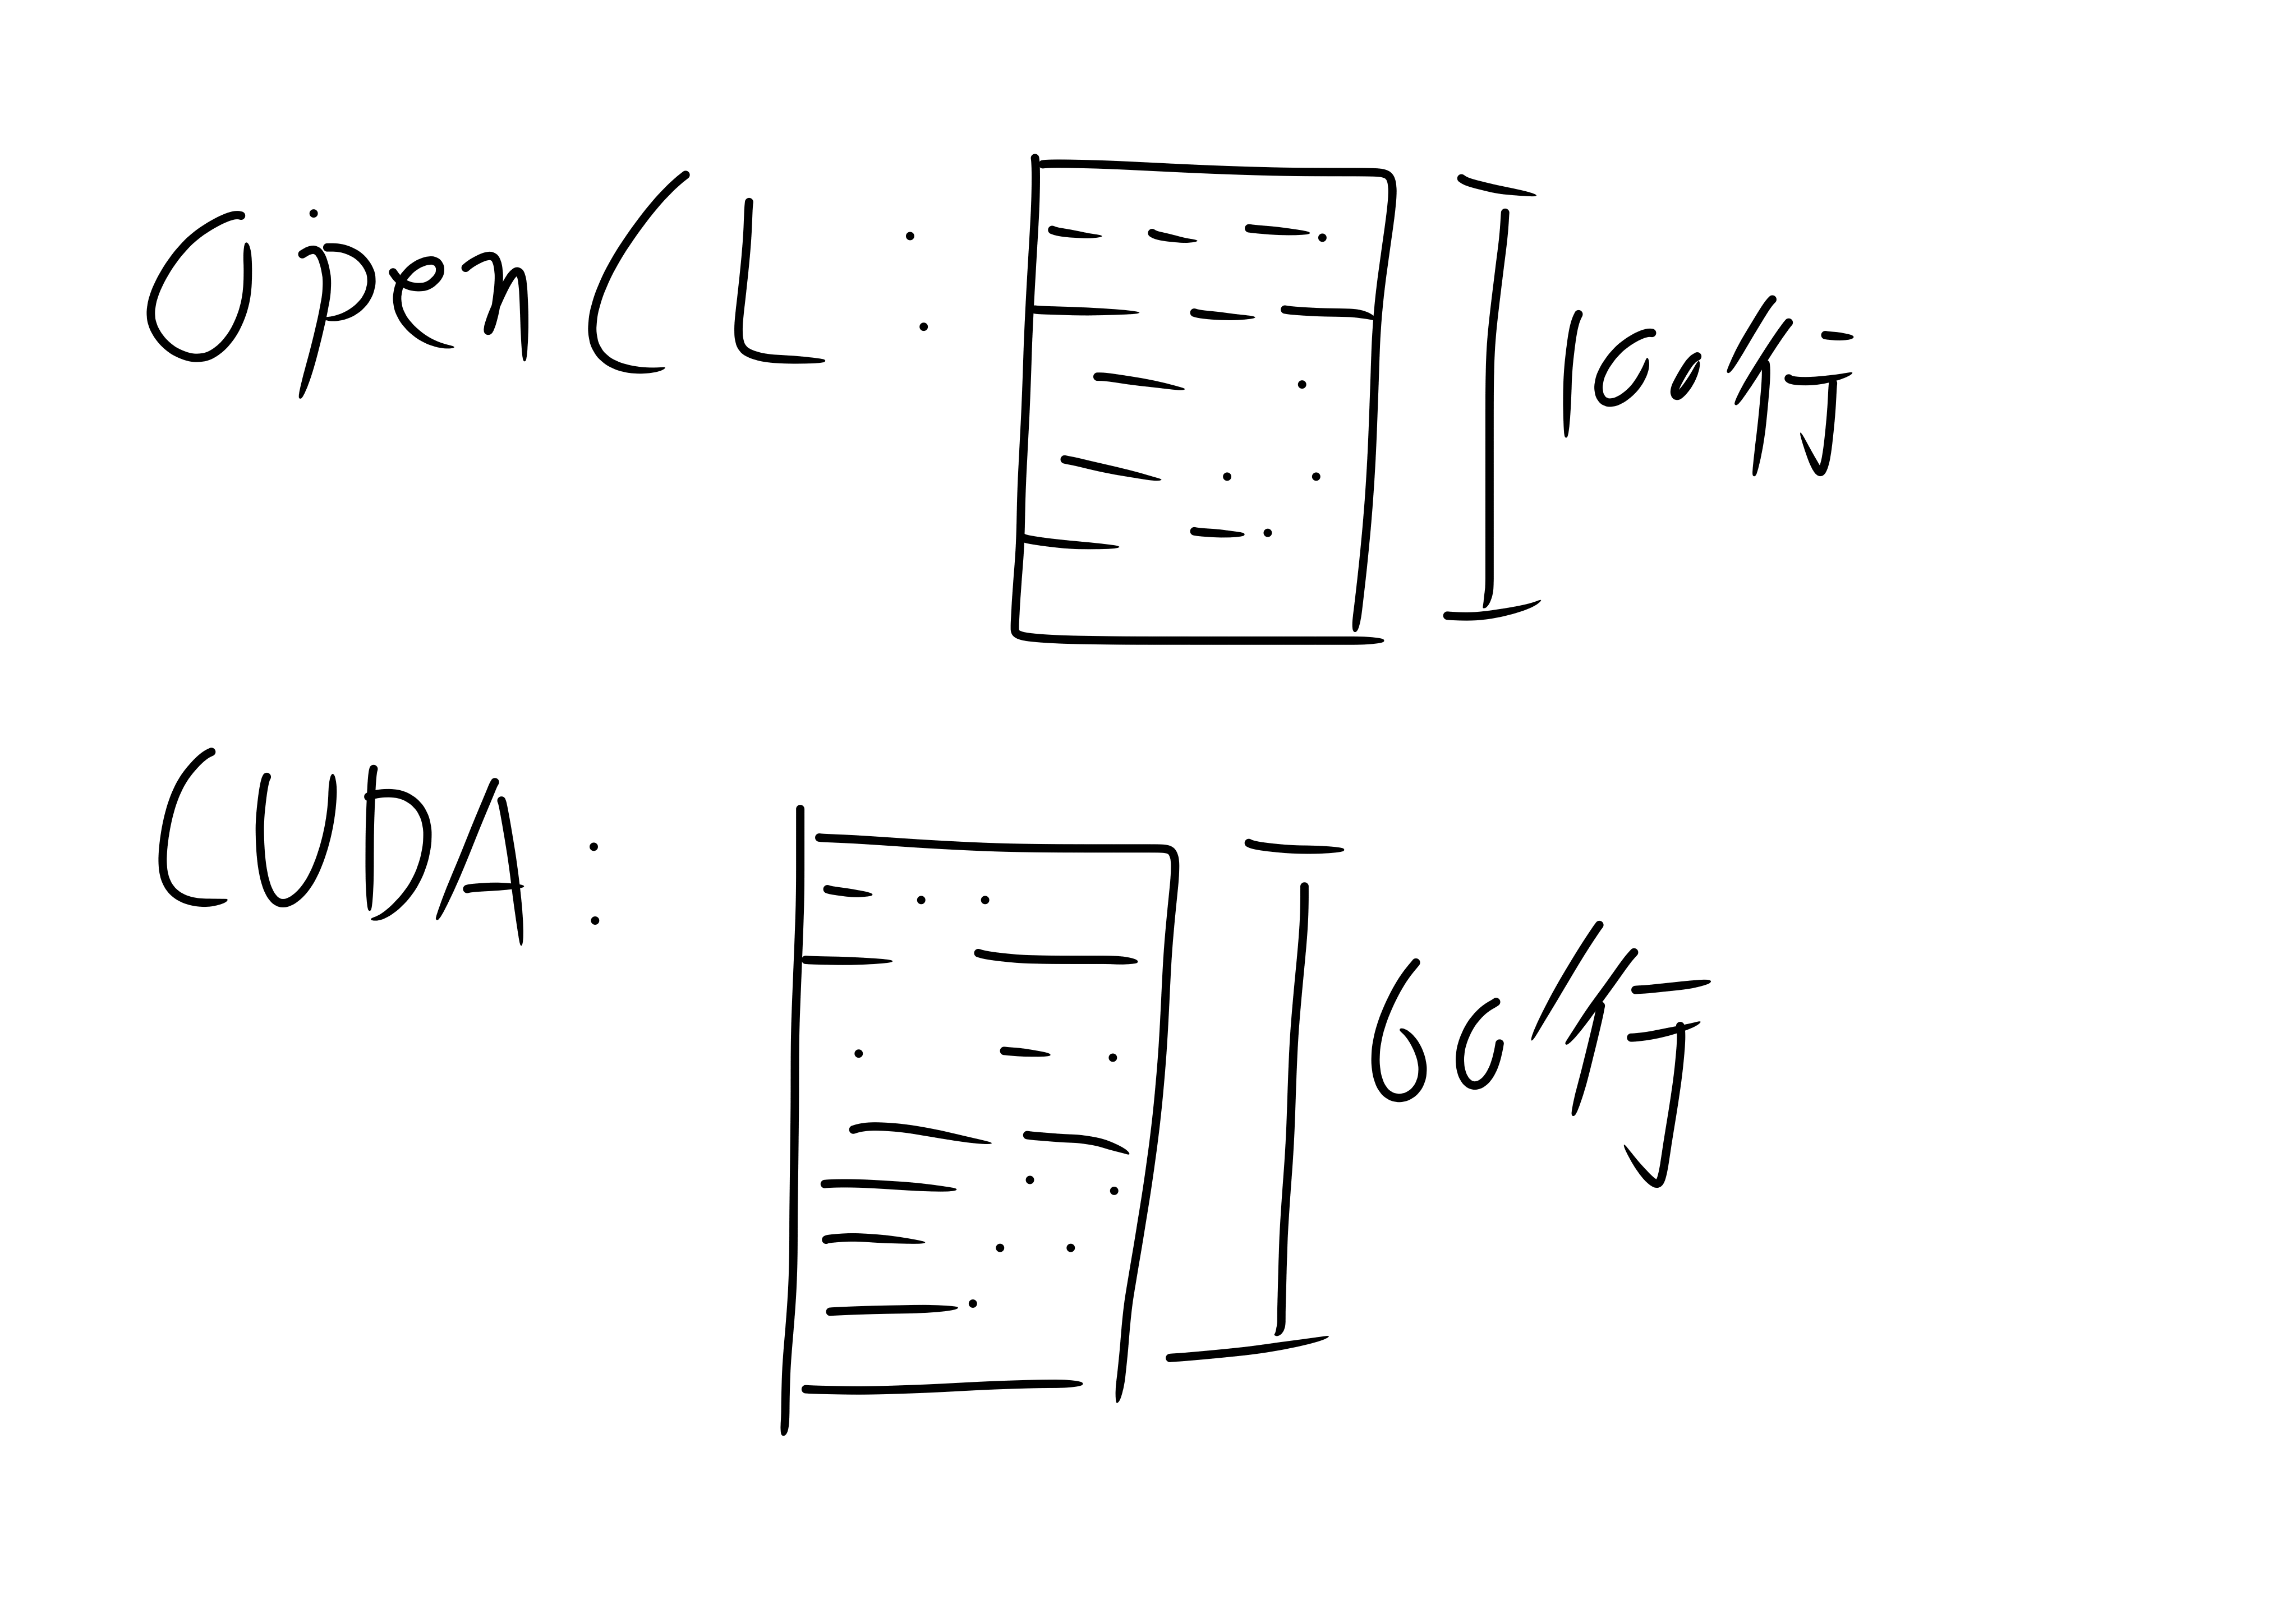 OpenCL : 100行
CUDA : 60行